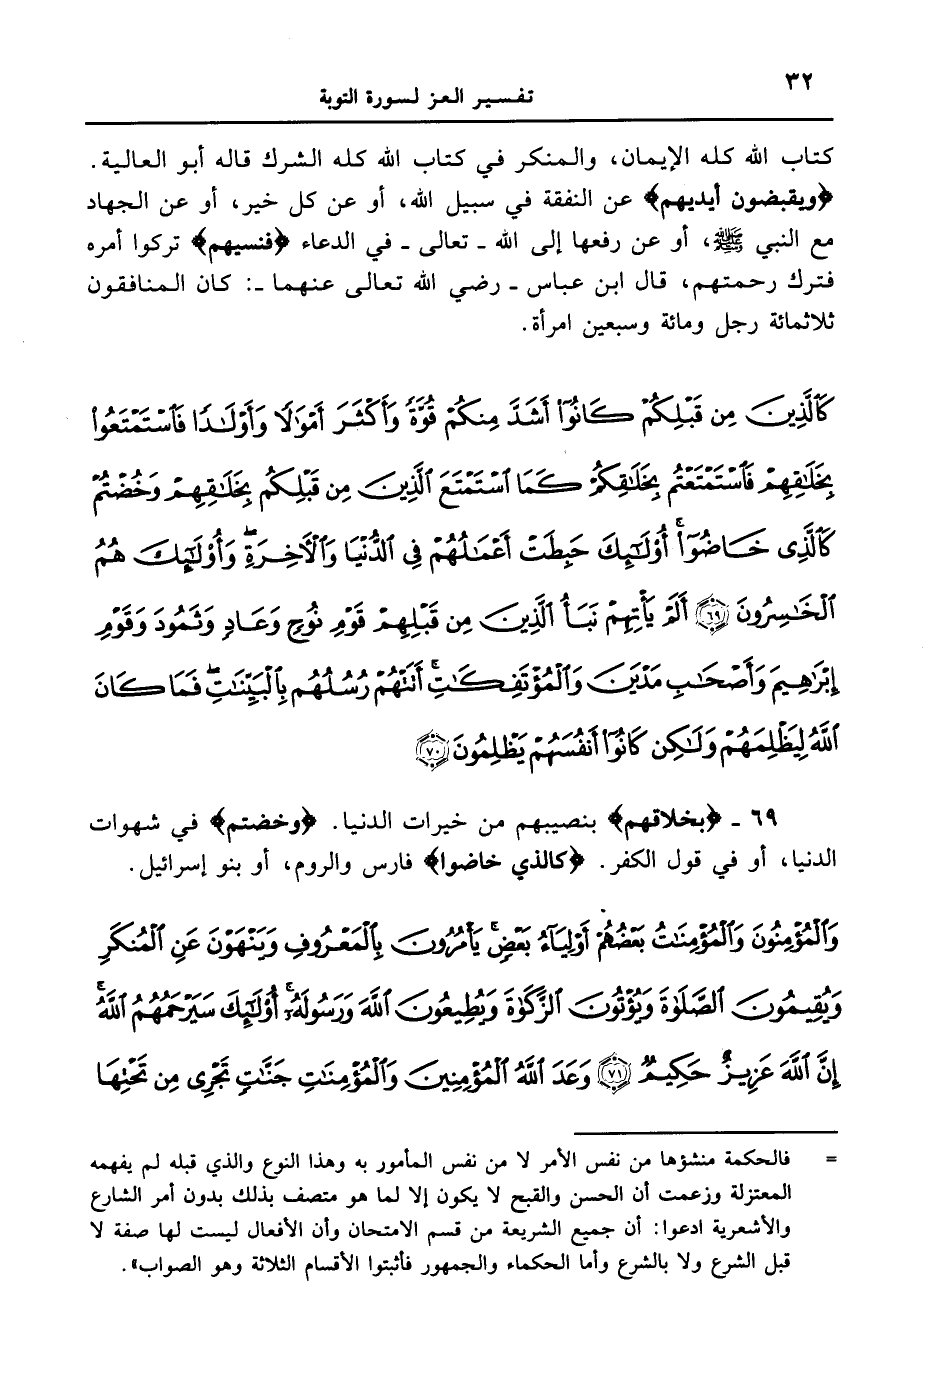 ٣٢
تفسير العز لسورة التوبة
كتاب الله كله الإيمان، والمنكر في كتاب الله كله الشرك قاله أبو العالية.
﴿ويقبضون أيديهم﴾ عن النفقة في سبيل الله، أو عن كل خير، أو عن الجهاد
مع النبي ﷺ، أو عن رفعها إلى الله ـ تعالى ـ في الدعاء ﴿فنسيهم﴾ تركوا أمره
فترك رحمتهم، قال ابن عباس ـ رضي الله تعالى عنهما ـ: كان المنافقون
ثلاثمائة رجل ومائة وسبعين امرأة.
كَٱلَّذِينَ مِن قَبْلِكُمْ كَانُوٓا۟ أَشَدَّ مِنكُمْ قُوَّةً وَأَكْثَرَ أَمْوَٰلًا وَأَوْلَـٰدًا فَٱسْتَمْتَعُوا۟
بِخَلَـٰقِهِمْ فَٱسْتَمْتَعْتُم بِخَلَـٰقِكُمْ كَمَا ٱسْتَمْتَعَ ٱلَّذِينَ مِن قَبْلِكُم بِخَلَـٰقِهِمْ وَخُضْتُمْ
كَٱلَّذِى خَاضُوٓا۟ ۚ أُو۟لَـٰٓئِكَ حَبِطَتْ أَعْمَـٰلُهُمْ فِى ٱلدُّنْيَا وَٱلْـَٔاخِرَةِ ۖ وَأُو۟لَـٰٓئِكَ هُمُ
ٱلْخَـٰسِرُونَ ٦٩ أَلَمْ يَأْتِهِمْ نَبَأُ ٱلَّذِينَ مِن قَبْلِهِمْ قَوْمِ نُوحٍ وَعَادٍ وَثَمُودَ وَقَوْمِ
إِبْرَٰهِيمَ وَأَصْحَـٰبِ مَدْيَنَ وَٱلْمُؤْتَفِكَـٰتِ ۚ أَتَتْهُمْ رُسُلُهُم بِٱلْبَيِّنَـٰتِ ۖ فَمَا كَانَ
ٱللَّهُ لِيَظْلِمَهُمْ وَلَـٰكِن كَانُوٓا۟ أَنفُسَهُمْ يَظْلِمُونَ ٧٠
٦٩ ـ ﴿بخلاقهم﴾ بنصيبهم من خيرات الدنيا. ﴿وخضتم﴾ في شهوات
الدنيا، أو في قول الكفر. ﴿كالذي خاضوا﴾ فارس والروم، أو بنو إسرائيل.
وَٱلْمُؤْمِنُونَ وَٱلْمُؤْمِنَـٰتُ بَعْضُهُمْ أَوْلِيَآءُ بَعْضٍ ۚ يَأْمُرُونَ بِٱلْمَعْرُوفِ وَيَنْهَوْنَ عَنِ ٱلْمُنكَرِ
وَيُقِيمُونَ ٱلصَّلَوٰةَ وَيُؤْتُونَ ٱلزَّكَوٰةَ وَيُطِيعُونَ ٱللَّهَ وَرَسُولَهُۥٓ ۚ أُو۟لَـٰٓئِكَ سَيَرْحَمُهُمُ ٱللَّهُ ۗ
إِنَّ ٱللَّهَ عَزِيزٌ حَكِيمٌ ٧١ وَعَدَ ٱللَّهُ ٱلْمُؤْمِنِينَ وَٱلْمُؤْمِنَـٰتِ جَنَّـٰتٍ تَجْرِى مِن تَحْتِهَا
= فالحكمة منشؤها من نفس الأمر لا من نفس المأمور به وهذا النوع والذي قبله لم يفهمه
المعتزلة وزعمت أن الحسن والقبح لا يكون إلا لما هو متصف بذلك بدون أمر الشارع
والأشعرية ادعوا: أن جميع الشريعة من قسم الامتحان وأن الأفعال ليست لها صفة لا
قبل الشرع ولا بالشرع وأما الحكماء والجمهور فأثبتوا الأقسام الثلاثة وهو الصواب».